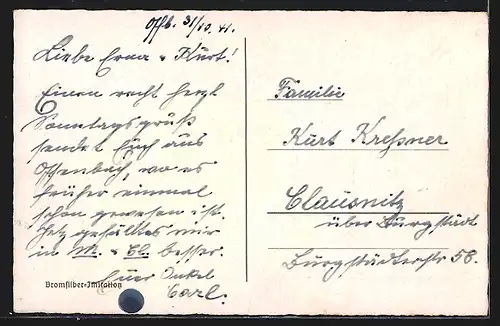 Offb. 31/10. 41.
Liebe Erna u. Kurt!
Einen recht herzl
Sonntagsgruß
sendet Euch aus
Offenbach, wo es
früher einmal
schön gewesen ist.
Jetz gefälltes mir
in M. u. Cl. besser.
Euer Onkel
Carl.
Bromsilber-Imitation
Familie
Kurt Kreßner
Clausnitz
über Burgstädt
Burgstädterstr 58.